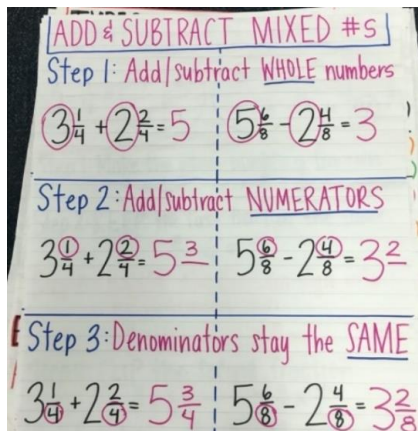 ADD & SUBTRACT MIXED #s
Step 1: Add/subtract WHOLE numbers
3 1/4 + 2 2/4 = 5
5 6/8 - 2 4/8 = 3
Step 2: Add/subtract NUMERATORS
3 1/4 + 2 2/4 = 5 3/
5 6/8 - 2 4/8 = 3 2/
Step 3: Denominators stay the SAME
3 1/4 + 2 2/4 = 5 3/4
5 6/8 - 2 4/8 = 3 2/8